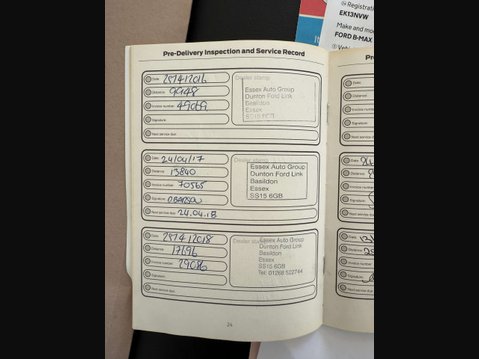 Registrati
EK13NVW
Make and mo
FORD B-MAX
Pre-Delivery Inspection and Service Record
Date
Distance 9948
Invoice number 49069
Signature
Next service due
Dealer stamp
Essex Auto Group
Dunton Ford Link
Basildon
Essex
Date 24/04/17
Distance 13840
Invoice number 70565
Signature
Next service due 24.04.18
Dealer stamp
Essex Auto Group
Dunton Ford Link
Basildon
Essex
SS15 6GB
Date 25/4/2018
Distance 17696
Invoice number 29086
Signature
Next service due
Dealer stamp
Essex Auto Group
Dunton Ford Link
Basildon
Essex
SS15 6GB
Tel: 01268 522744
24
Pr
Date
Distance
Invoice number
Signature
Next service due